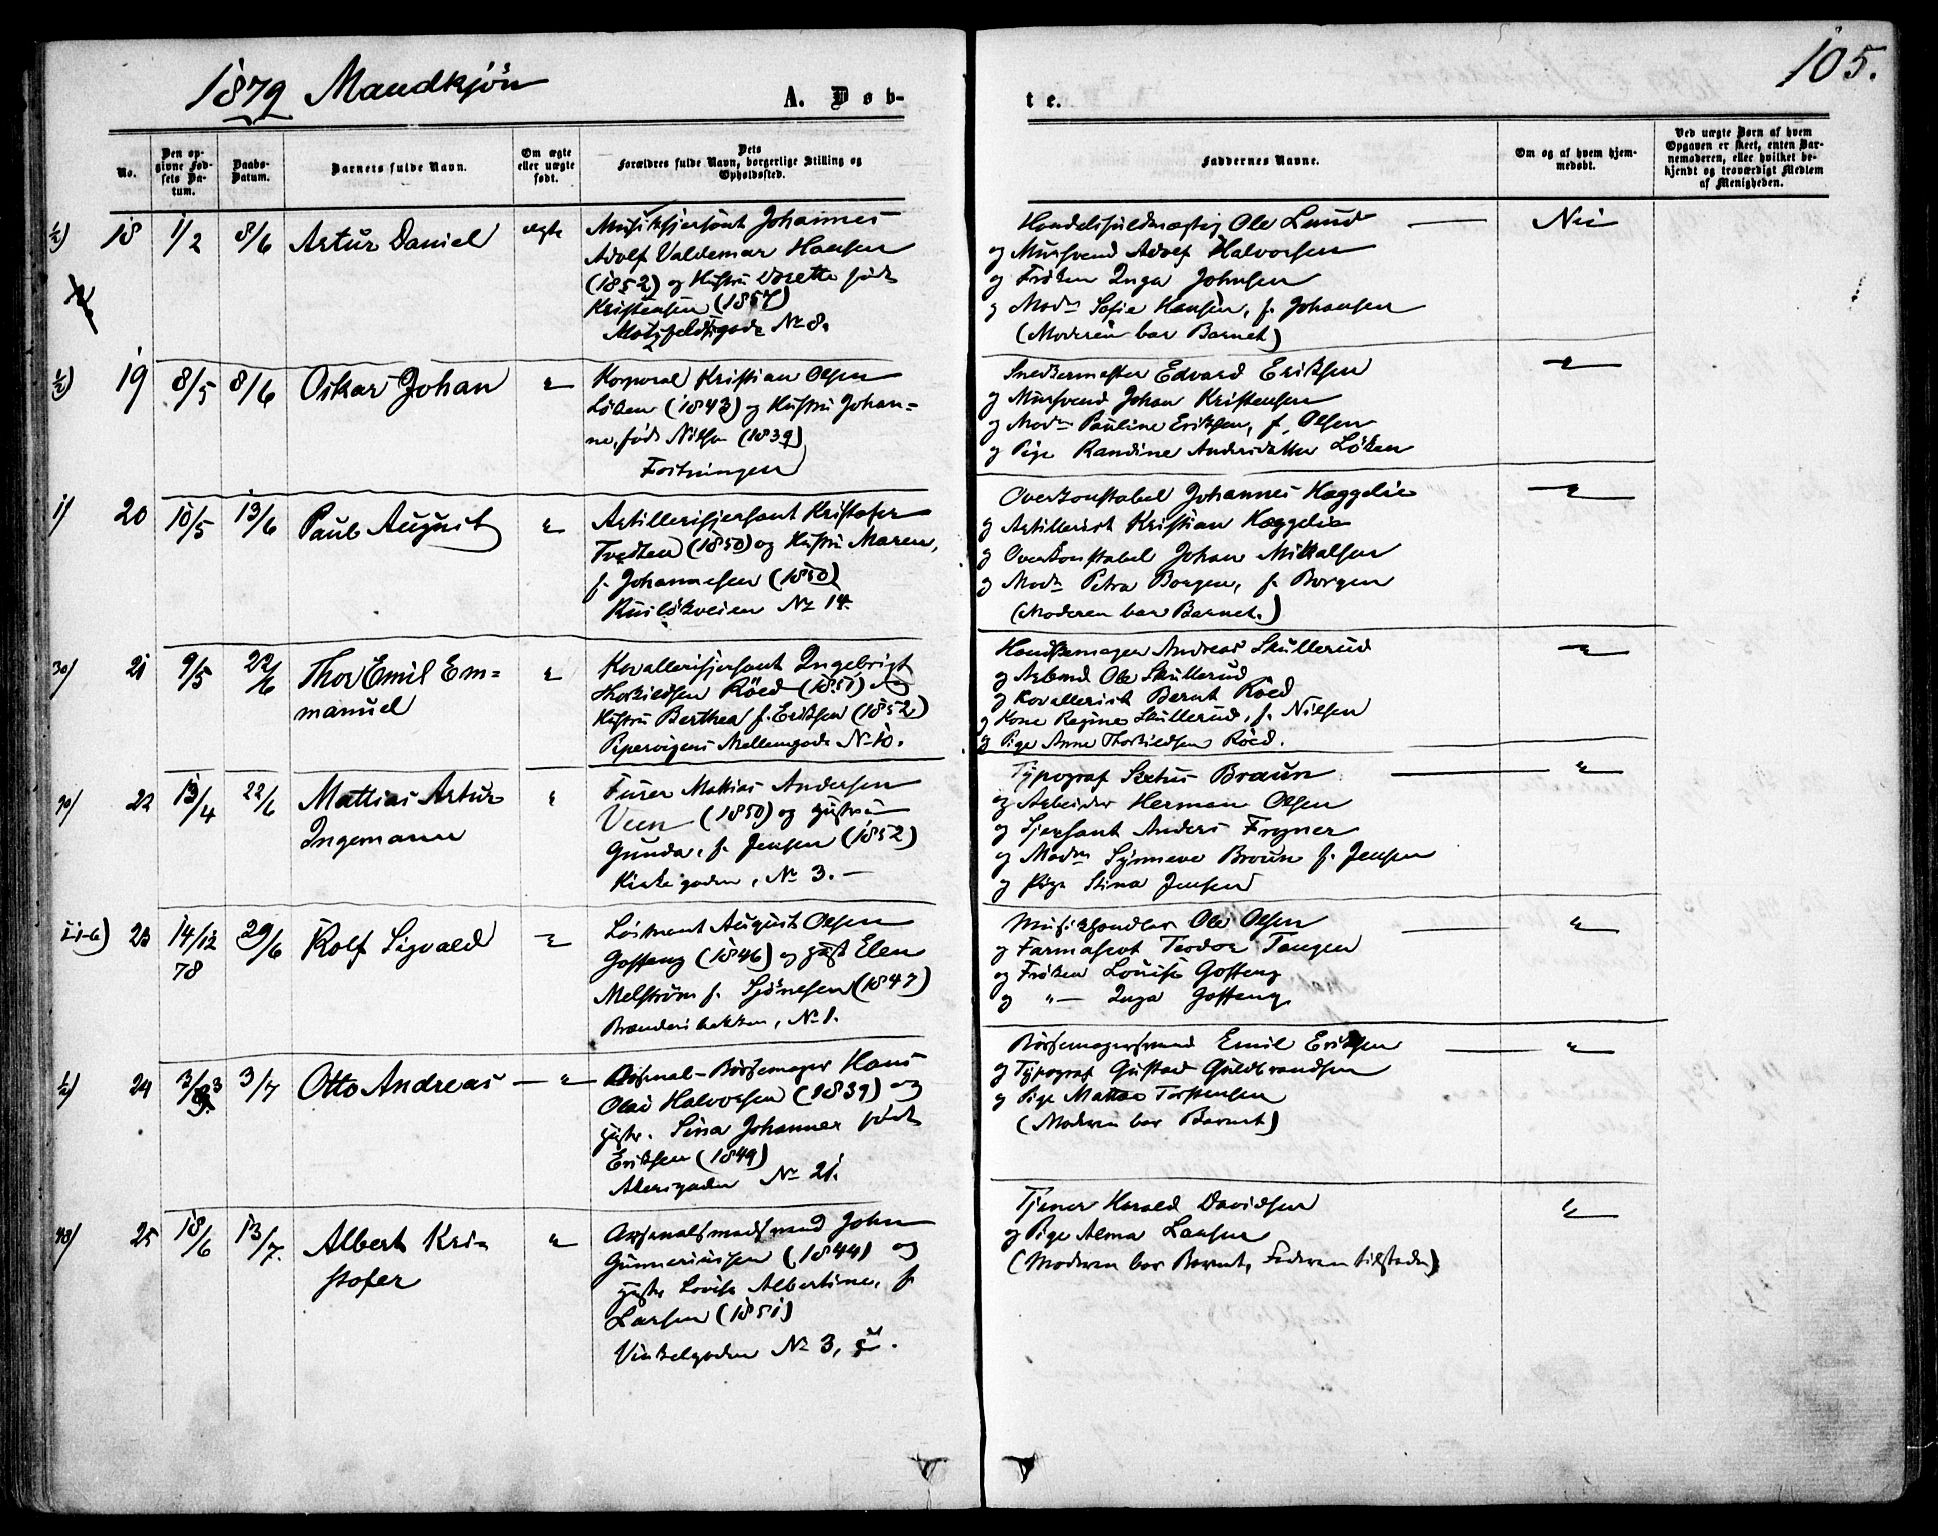 105.
1879 Mandkjøn
A. Døb-
te.
No.
Den op-
givne Fød-
sels Da-
tum.
Daabs-
Datum.
Barnets fulde Navn.
Om ægte
eller uægte
født.
Dets
Forældres fulde Navn, borgerlige Stilling og
Opholdssted.
Faddernes Navne.
Om og af hvem hjem-
medøbt.
Ved uægte Børn af hvem
Opgaven er skeet, enten Bar-
nemoderen, eller hvilket be-
kjendt og troværdigt Medlem
af Menigheden.
1/2) 18 1/2 8/6 Artur Daniel ægte
Musiksersjant Johannes
Adolf Valdemar Hansen
(1852) og Hustru Dorette født
Kristensen (1857)
Motzfeldtsgade No 8.
Handelsfuldmægtig Ole Lund — Nei
og Mursvend Adolf Halvorsen
og Frøken Inga Johnsen
og Madm Sofie Hansen, f. Johansen
(Moderen bar Barnet)
1/2) 19 8/5 8/6 Oskar Johan "
Korporal Kristian Olsen
Løken (1843) og Hustru Johan=
ne, født Nilsen (1839)
Fæstningen
Snedkermester Edvard Eriksen "
og Mursvend Johan Kristensen
og Madm Pauline Eriksen, f. Olsen
og Pige Randine Andersdatter Løken
1) 20 10/5 13/6 Paul August "
Artillerisersjant Kristofer
Tvedten (1850) og Hustru Maren,
f. Johannesen (1850)
Ruseløkveien No 14.
Overkonstabel Johannes Hæggelie "
og Artillerist Kristian Hæggelie
og Overkonstabel Johan Mikkelsen
og Madm Petra Borgen, f. Borgen
(Moderen bar Barnet.)
30) 21 9/5 22/6 Thor Emil Em=
manuel "
Kavallerisersjant Ingebrigt
Thorkildsen Röed (1851) og
Hustru Berthea f. Eriksen (1852)
Pipervigens Mellemgade No 10.
Handskemager Andreas Skullerud "
og Arbmd Ole Skullerud
og Kavallerist Bernt Röed
og Kone Regine Skullerud, f. Nilsen
og Pige Anne Thorkildsen Röed.
90) 22 13/4 22/6 Mattias Artur
Ingemann "
Furer Mattias Andersen
Veen (1850) og Hustru
Gunda, f. Jensen (1852)
Kirkegaden, No 3. —
Typograf Braun — "
og Arbeider Herman Olsen
og Sjersant Anders Frogner
og Madm Synneve Braun f. Jensen
og Pige Stina Jensen
23 14/12 78 29/6 Rolf Sigvald "
Løitnant August Olsen
Gosseng (1846) og Hust Elen
Melstrøm f. Sjønesen (1847)
Brænderibakken, No 1.
Musikhandler Ole Olsen — "
og Farmaseut Teodor Tangen
og Frøken Louise Gosseng
og "— Inga Gosseng
1/2) 24 3/3 3/7 Otto Andreas — "
Arsenal-Børsemager Hans
Olai Halvorsen (1839) og
Hustr. Lina Johannes født
Eriksen (1849)
Akersgaden No 21.
Børsemagersvend Emil Eriksen — "
og Typograf Gustav Guldbrandsen
og Pige Mattea Torstensen
(Moderen bar Barnet)
40) 25 18/6 13/7. Albert Kri-
stofer "
Arsenalsmedsvend John
Gunneriussen (1844) og
Hustr Lovise Albertine, f.
Larsen (1851)
Vinkelgaden No 3,
Tjener Harald Davidsen "
og Pige Alma Larsen
(Moderen bar Barnet, Faderen tilstede)